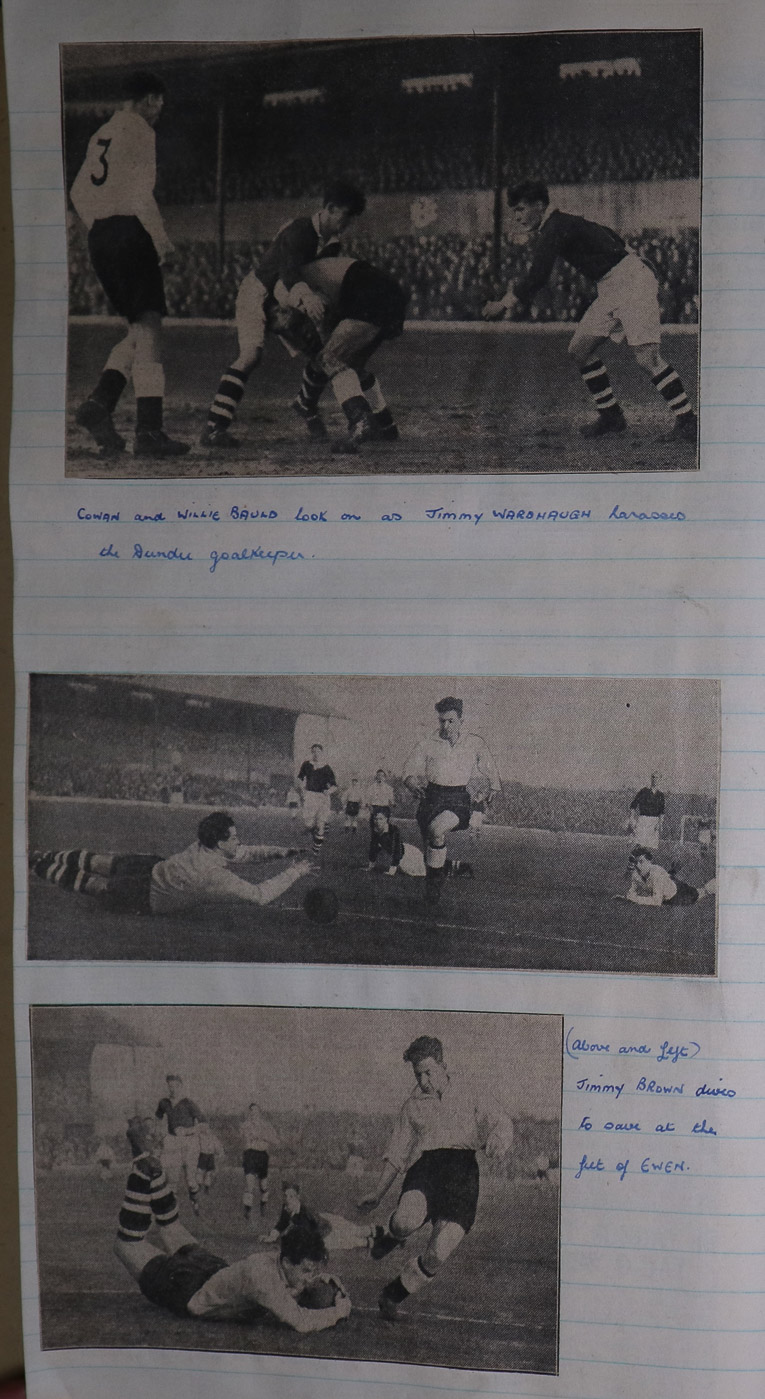 3
COWAN and WILLIE BAULD look on as Jimmy WARDHAUGH harasses
the Dundee goalkeeper.
(Above and left)
Jimmy BROWN dives
to save at the
feet of EWEN.